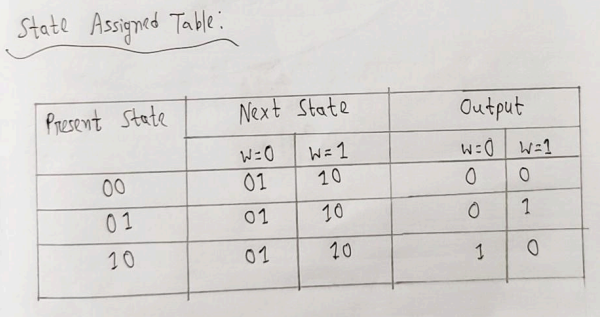 State Assigned Table:
Present State Next State Output
W=0 W=1 W=0 W=1
00 01 10 0 0
01 01 10 0 1
10 01 10 1 0